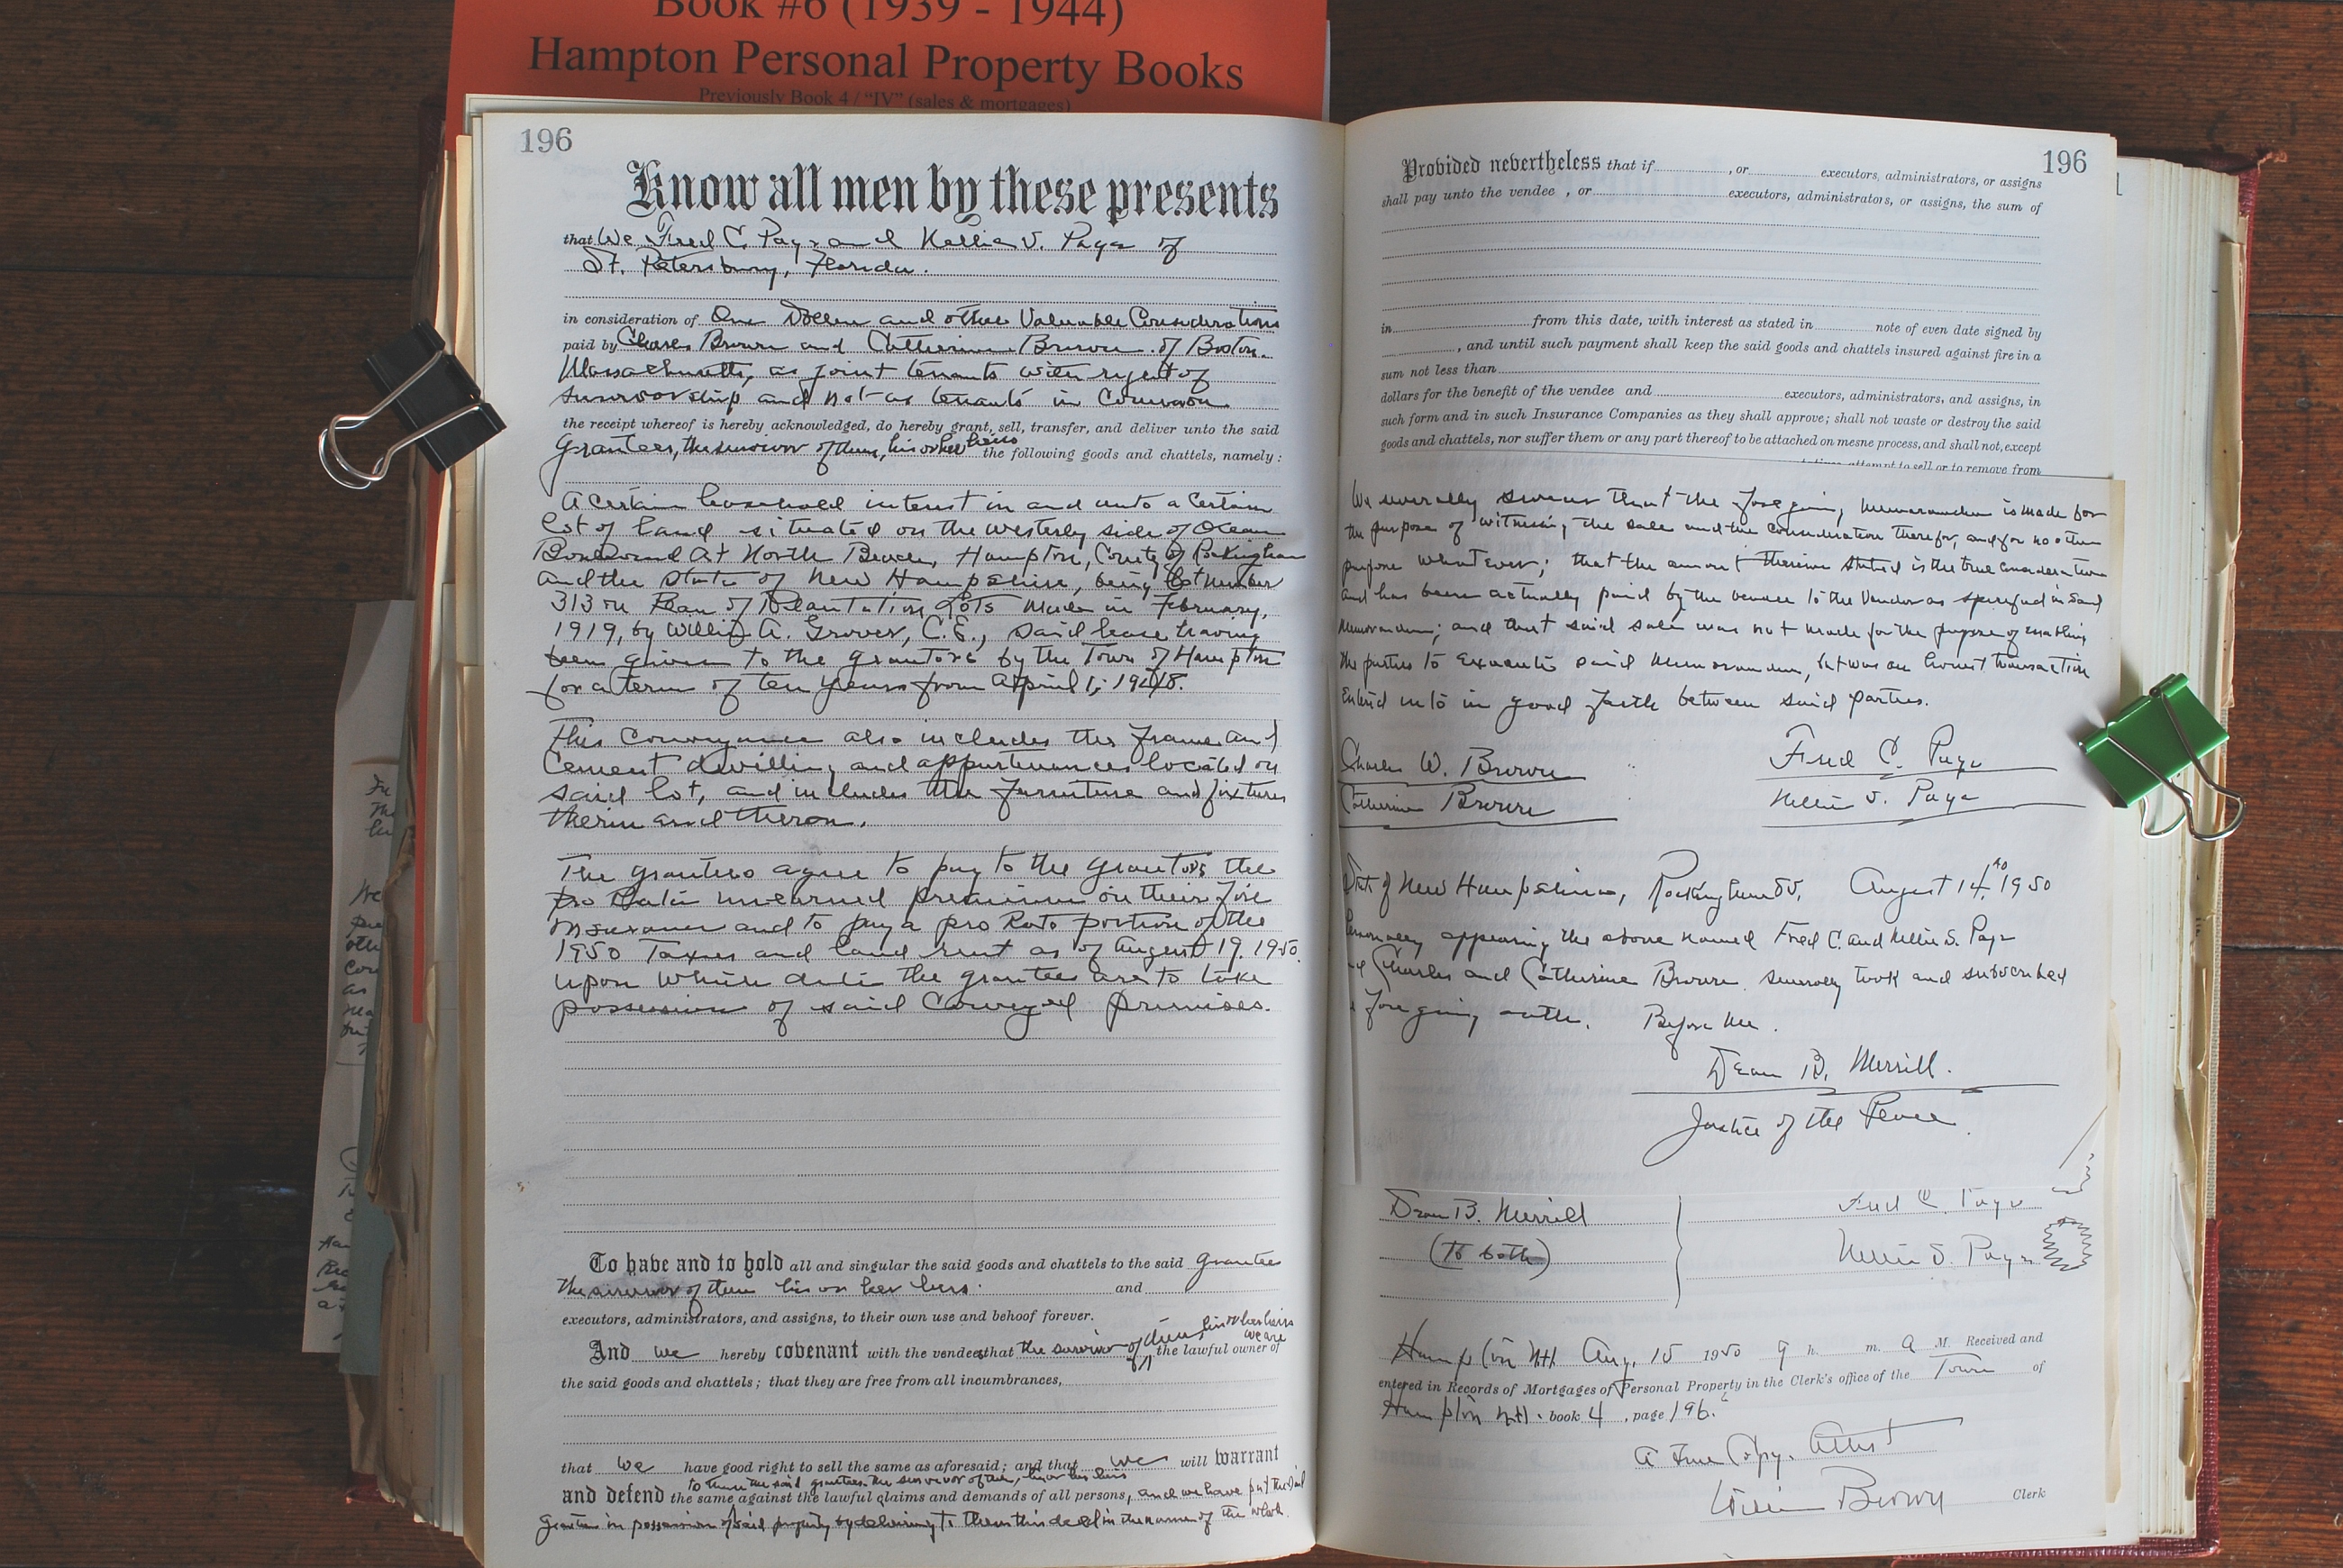 Book #6 (1939 - 1944)
Hampton Personal Property Books
Previously Book 4 / "IV" (sales & mortgages)
196
Know all men by these presents
that We Fred C. Page and Nellie S. Page of
St. Petersburg, Florida.
in consideration of One Dollar and other Valuable Considerations
paid by Charles Brown and Catherine Brown of Boston
Massachusetts, as joint tenants with right of
survivorship and not as tenants in Common
the receipt whereof is hereby acknowledged, do hereby grant, sell, transfer, and deliver unto the said
Grantees, the survivor of them, his or her heirs the following goods and chattels, namely:
A certain leasehold interest in and unto a certain
lot of land situated on the westerly side of Ocean
Boulevard at North Beach, Hampton, County of Rockingham
and the State of New Hampshire, being Lot number
313 on Plan of Plantation Lots made in February,
1919, by William A. Grover, C.E., said lease having
been given to the grantors by the Town of Hampton
for a term of ten years from April 1, 1948.
This Conveyance also includes the frame and
Cement dwelling and appurtenances located on
said lot, and includes the furniture and fixtures
therin and theron.
The grantees agree to pay to the grantors the
pro rata unearned premium on their fire
insurance and to pay a pro rata portion of the
1950 Taxes and land rent as of August 19, 1950.
upon which date the grantees are to take
possession of said Conveyed premises.
To have and to hold all and singular the said goods and chattels to the said grantees
the survivor of them his or her heirs. and
executors, administrators, and assigns, to their own use and behoof forever.
And we hereby covenant with the vendees that the survivor of them, his or her heirs we are the lawful owner of
the said goods and chattels; that they are free from all incumbrances,
that we have good right to sell the same as aforesaid; and that we will warrant
to them the said grantees the survivor of them, his or her heirs
and defend the same against the lawful claims and demands of all persons, and we have put the said
grantees in possession of said property by delivering to them this deed in the name of the whole.
196
Provided nevertheless that if , or executors, administrators, or assigns
shall pay unto the vendee , or executors, administrators, or assigns, the sum of
in from this date, with interest as stated in note of even date signed by
, and until such payment shall keep the said goods and chattels insured against fire in a
sum not less than
dollars for the benefit of the vendee and executors, administrators, and assigns, in
such form and in such Insurance Companies as they shall approve; shall not waste or destroy the said
goods and chattels, nor suffer them or any part thereof to be attached on mesne process, and shall not, except
attempt to sell or to remove from
We severally swear that the foregoing memorandum is made for
the purpose of witnessing the sale and the consideration therefor, and for no other
purpose whatever; that the amount therein stated is the true consideration
and has been actually paid by the vendee to the Vendor as specified in said
memorandum; and that said sale was not made for the purpose of enabling
the parties to execute said memorandum, but was an honest transaction
entered into in good faith between said parties.
Charles W. Brown Fred C. Page
Catherine Brown Nellie S. Page
State of New Hampshire, Rockingham SS. August 14, AD 1950
Personally appearing the above named Fred C. and Nellie S. Page
and Charles and Catherine Brown severally took and subscribed
foregoing oath. Before Me.
Dean B. Merrill.
Justice of the Peace
Dean B. Merrill Fred C. Page
(to both) Nellie S. Page
Hampton NH Aug. 15 1950 9 h. m. A M. Received and
entered in Records of Mortgages of Personal Property in the Clerk's office of the Town of
Hampton NH. book 4 , page 196.
A True Copy. Attest
William Brown Clerk